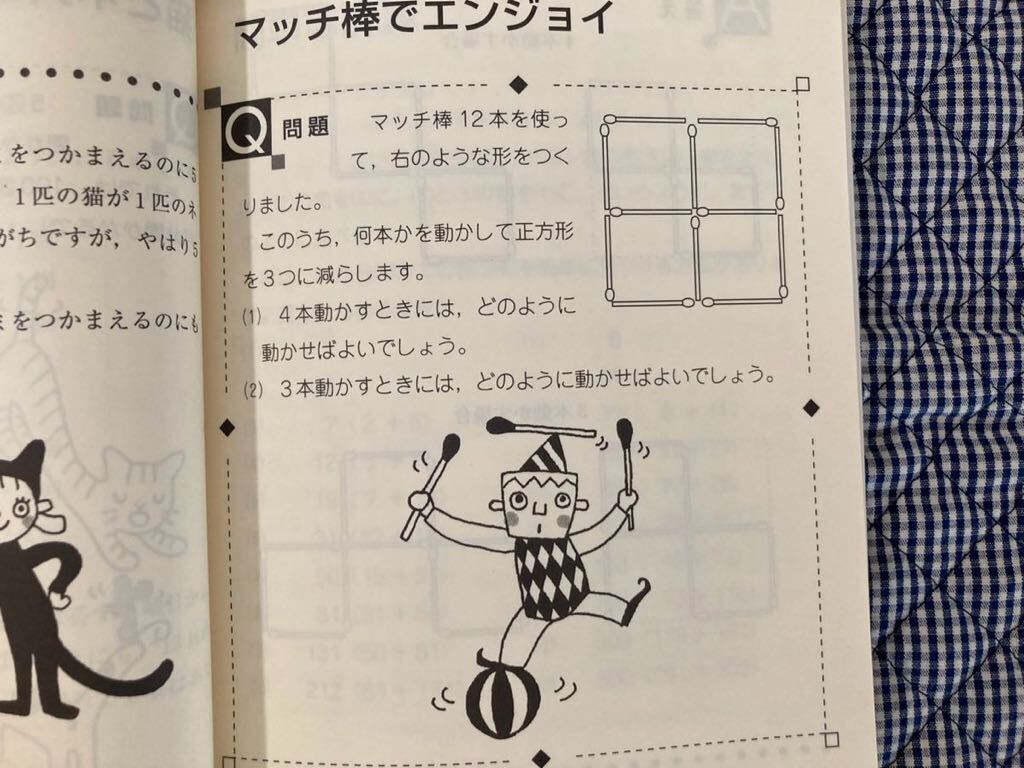 マッチ棒でエンジョイ
Q 問題 マッチ棒12本を使っ
て，右のような形をつく
りました。
このうち，何本かを動かして正方形
を3つに減らします。
(1) 4本動かすときには，どのように
動かせばよいでしょう。
(2) 3本動かすときには，どのように動かせばよいでしょう。
をつかまえるのに5
1匹の猫が1匹のネ
がちですが，やはり5
をつかまえるのにも